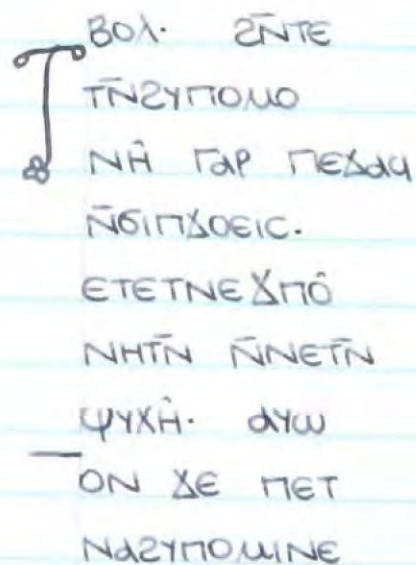 ⲃⲟⲗ· ϩⲛ̄ⲧⲉ
ⲧⲛ̄ϩⲩⲡⲟⲙⲟ
ⲛⲏ̂ ⲅⲁⲣ ⲡⲉϫⲁϥ
ⲛ̄ϭⲓⲡϫⲟⲉⲓⲥ·
ⲉⲧⲉⲧⲛⲉϫⲡⲟ̂
ⲛⲏⲧⲛ̄ ⲛ̄ⲛⲉⲧⲛ̄
ⲯⲩⲭⲏ̂· ⲁⲩⲱ
ⲟⲛ ϫⲉ ⲡⲉⲧ
ⲛⲁϩⲩⲡⲟⲙⲓⲛⲉ